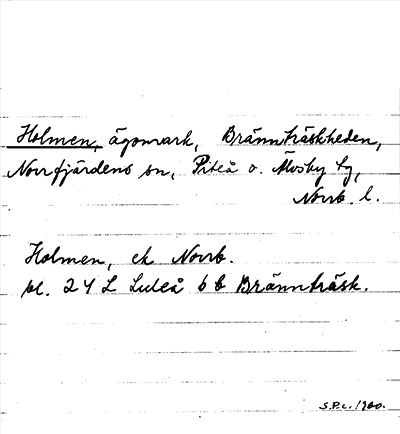 Holmen, ägomark, Brännträskheden,
Norrfjärdens sn, Piteå o. Älvsby tg,
Norrb. l.
Holmen, ek Norrb.
bl. 24 L Luleå bb Brännträsk.
S.P.c. 1960.